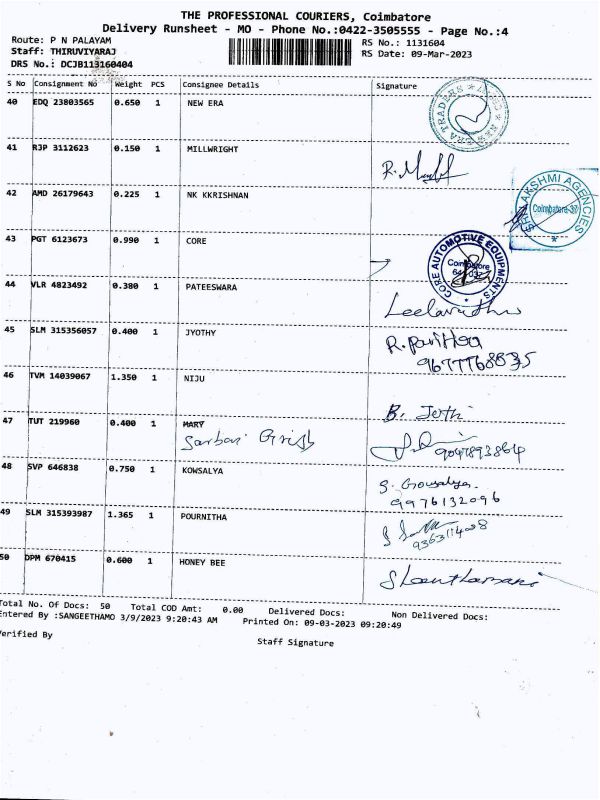 THE PROFESSIONAL COURIERS, Coimbatore
Delivery Runsheet - MO - Phone No.:0422-3505555 - Page No.:4
Route: P N PALAYAM
RS No.: 1131604
Staff: THIRUVIYARAJ
RS Date: 09-Mar-2023
DRS No.: DCJB113160404
S No Consignment No Weight PCS Consignee Details Signature
40 EDQ 23803565 0.650 1 NEW ERA
41 RJP 3112623 0.150 1 MILLWRIGHT
42 AMD 26179643 0.225 1 NK KKRISHNAN
LAKSHMI AGENCIES
Coimbatore-37
43 PGT 6123673 0.990 1 CORE
CORE AUTOMOTIVE EQUIPMENTS
Coimbatore
44 VLR 4823492 0.380 1 PATEESWARA
45 SLM 315356057 0.400 1 JYOTHY
46 TVM 14039067 1.350 1 NIJU
B. Jothi
47 TUT 219960 0.400 1 MARY
9047893864
48 SVP 646838 0.750 1 KOWSALYA
S. Gowsalya.
9976132096
49 SLM 315393987 1.365 1 POURNITHA
50 DPM 670415 0.600 1 HONEY BEE
Total No. Of Docs: 50 Total COD Amt: 0.00 Delivered Docs: Non Delivered Docs:
Entered By :SANGEETHAMO 3/9/2023 9:20:43 AM Printed On: 09-03-2023 09:20:49
Verified By
Staff Signature